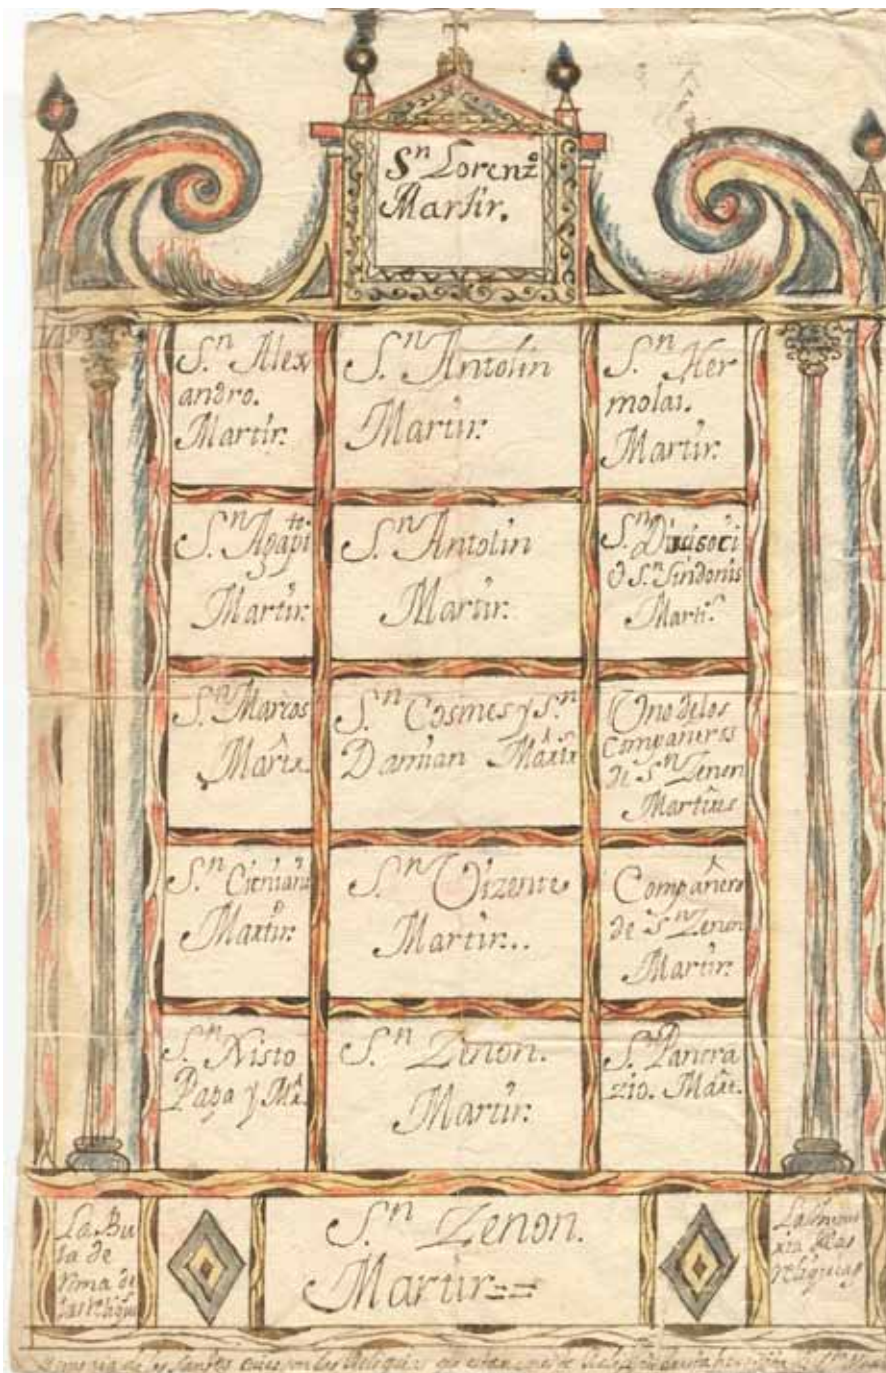 Sn Lorenzo
Martir.
S.n Alex
andro.
Martir.
S.n Antolin
Martir.
S.n Her
molai.
Martir.
S.n Agapito
Martir.
S.n Antolin
Martir.
S.n
S.n Sindonis
Martir.
S.n Marcos
Martir.
S.n Cosmes y S.n
Damian Martir
Uno de los
Compañeros
de S.n Zenon
Martires
S.n
Martir.
S.n Vizente
Martir..
Compañero
de S.n Zenon
Martir.
S.n Xisto
Papa y Mr.
S.n Zenon.
Martir.
S.n Pancra
zio. Mart.
La Bu
la de
Roma de
las reliqui
S.n Zenon.
Martir==
La
de las
reliquias
Memoria de los Santos cuias son las Reliquias q estan en este